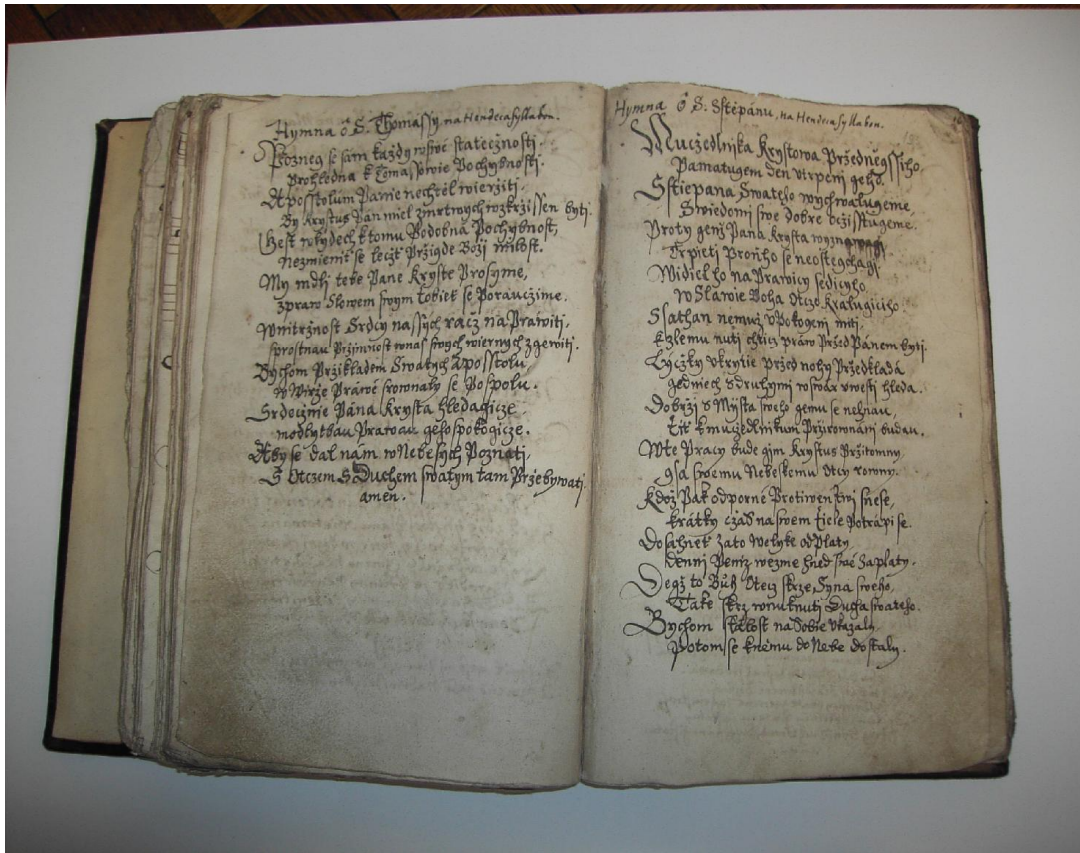 Hymna ô S. Thomassy, na Hendecasyllabon.
Pozneg se sám každý w swé statečnosti.
Prohledna k Tomassowie Pochybnosti.
Aposstolum Panie nechtěl wieržiti,
By Krystus Pán miel z mrtwych wzkržissen byti.
Gest w lidech k tomu Podobná Pochybnost,
Nezmieniť se leczt Pržigde Boží milost.
My mdli tebe Pane Kryste Prosyme,
zpraw Slowem swym tobieť se Porauczime.
Wnitržnost Srdcy nassych racz naPrawiti,
sprostnau Pržjmnost w nas swych wiernych zgewiti.
Bychom Pržikladem Swatych Aposstolu,
w Wirže Prawé srownaly se Pospolu.
Srdecžnie Pána Krysta hledagicze,
modlytbau Prawau geho spokogicze.
Aby se dal nám w Nebesych Poznati,
S Otczem S Duchem swatym tam Pržebywati.
amen.
Hymna ô S. Sstěpánu, na Hendecasyllabon.
Muczedlnjka Krystowa Pržednegssiho,
Pamatugem den vtrpenj geho.
Sstiepana Swateho wychwalugeme,
Swiedomj swe dobre obžisstugeme.
Proty genž Pana Krysta wyznawagj
Trpieti Proňho se neostegchagj
Widiel ho na Prawicy sedicyho
w Slawie Boha Otcze Kralugiciho.
Ssathan nemuž v Pokogenj miti,
K zlemu nutj chticz práw Pržed Panem byti.
Lyczky vkrytie Pržed nohy Pržedklada
Gedniech s druhymi w swár vwesti hleda.
Dobržj s Mjsta sweho gemu se nehnau,
Tiť k muczedlnikum Pržirownánj budau.
W té Pracy bude gim Krystus Pržitomny,
gsa swemu Nebeskemu Otcy rowny.
Kdož Pak odporne Protiwenstwj snese,
krátky czas na swem tiele Potrapi se.
Dosáhneť za to welyke odPlaty,
denný Peníz wezme hned swé zaplaty.
Degž to Bůh Otecz skrze Syna sweho,
Také skrz wnuknuti Ducha swateho.
Bychom stálost na Sobie vkazaly,
Potom se k němu do Nebe dostaly.